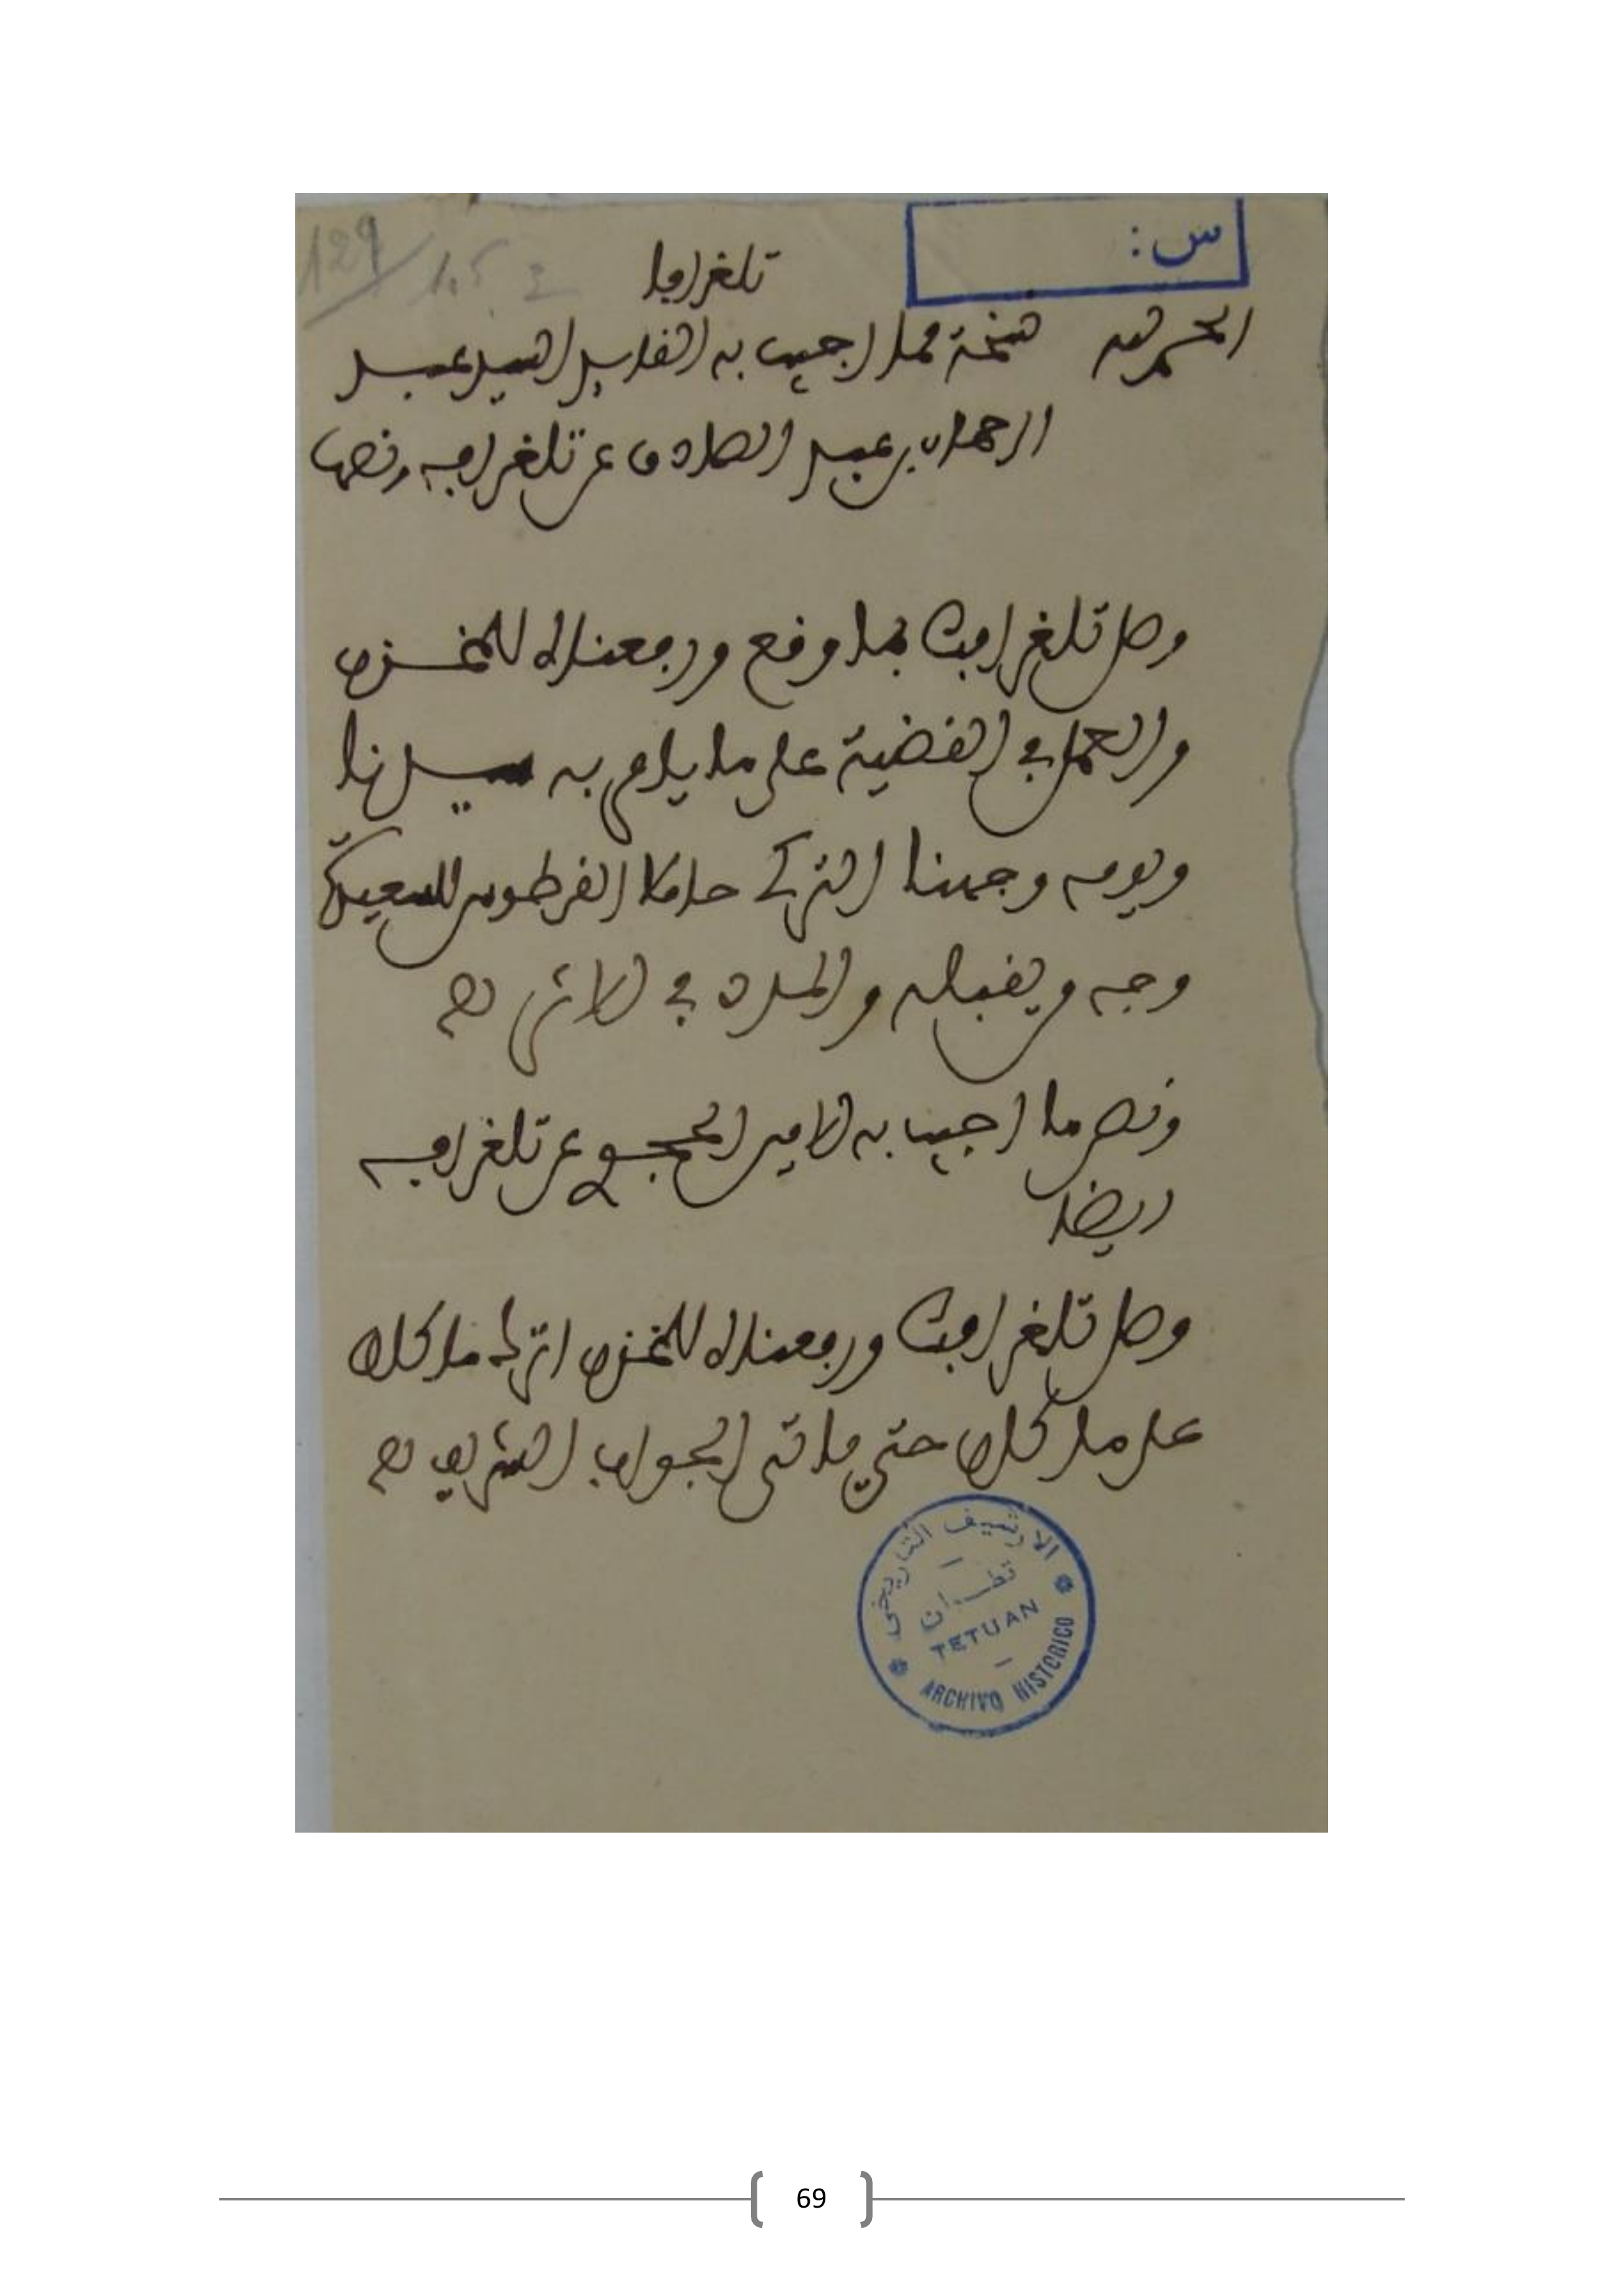 129/1.5 ع
س:
تلغراما
الحمد لله نسخة مما اجيب به القايد السيد عبد
الرحمان بن عبد الصادق عن تلغرافه ونصها
وصل تلغرافك بما وقع ورفعناه للمخزن
والعمل في القضية على ما يامر به سيدنا
ويومه وجهنا التركي حاملا القرطوس للسعيدية
وجه ويقبله والمدد في الاثر صح
ونص ما اجيب به الامين الحجوي عن تلغرافه
ايضا
وصل تلغرافك ورفعناه للمخزن اترك ما كان
على ما كان حتى ياتي الجواب الشريف صح
الارشيف التاريخي
تطوان
TETUAN
ARCHIVO HISTORICO
69